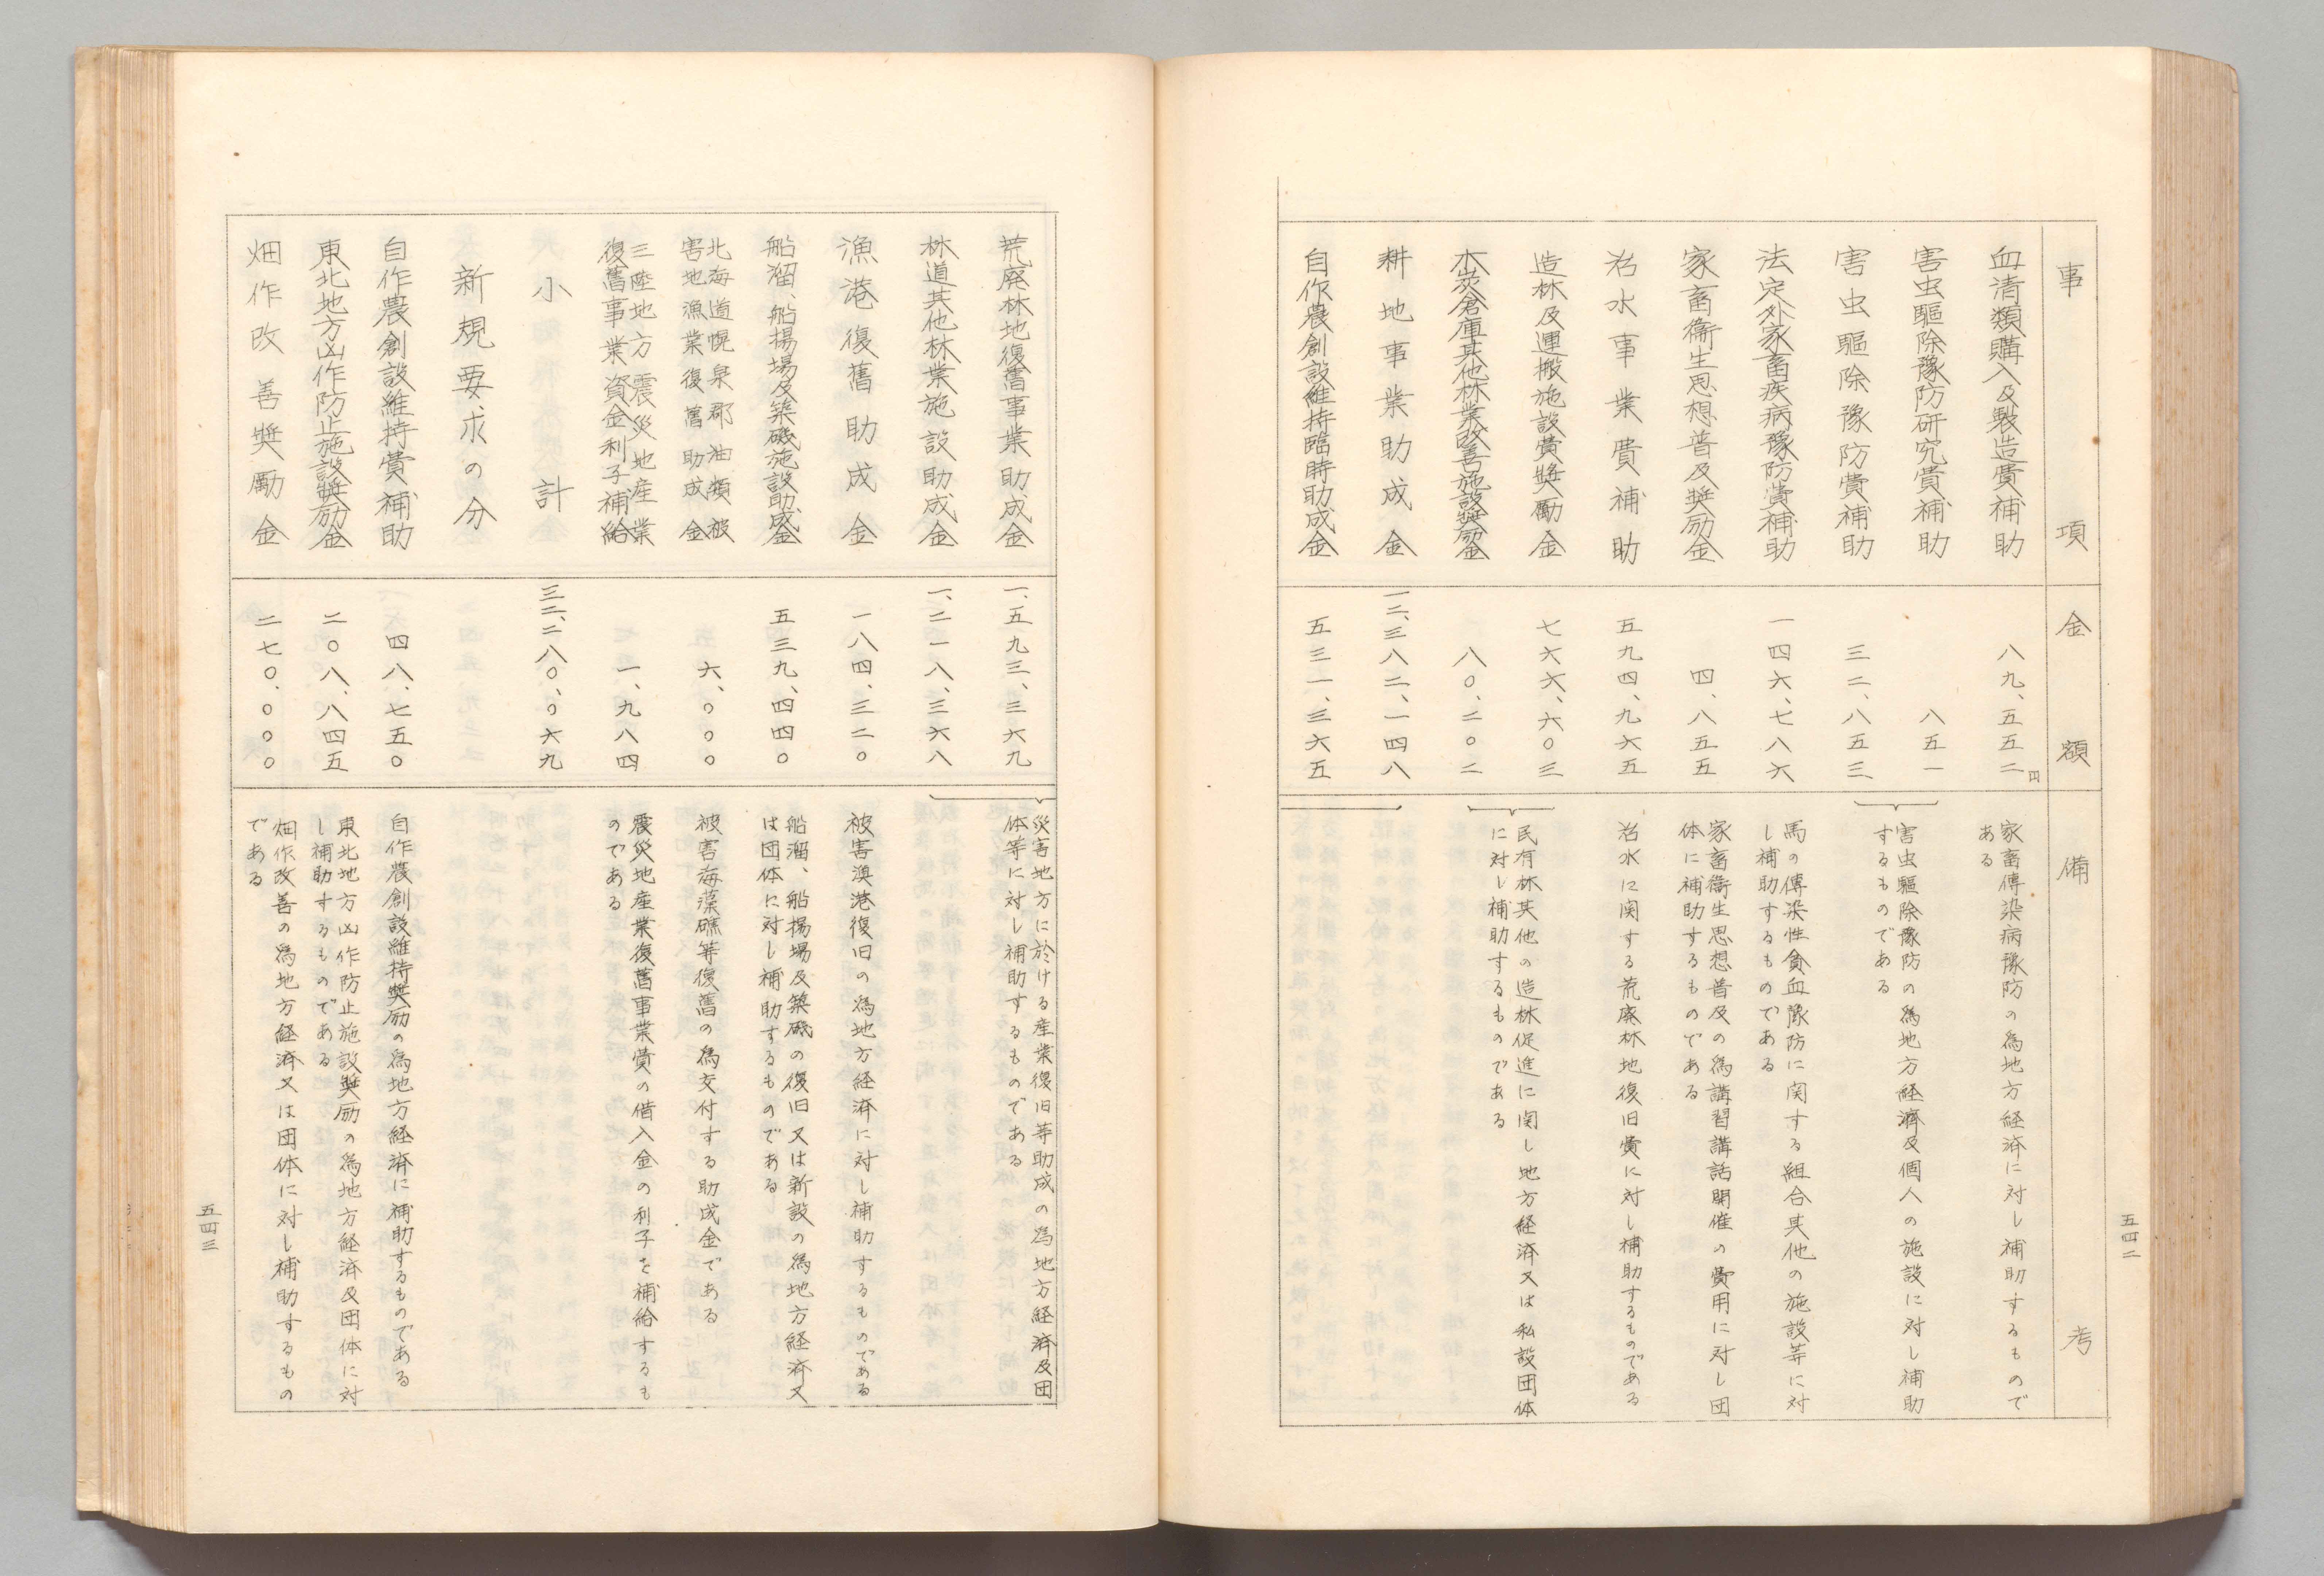 事項
金額
備考
血清類購入及製造費補助
八九、五五二円
家畜傳染病豫防の爲地方経済に対し補助するもので
ある
害虫驅除豫防研究費補助
八五一
害虫驅除豫防費補助
三二、八五三
害虫驅除豫防の爲地方経済及個人の施設に対し補助
するものである
法定外家畜疾病豫防費補助
一四六、七八六
馬の傳染性貧血豫防に関する組合其他の施設等に対
し補助するものである
家畜衞生思想普及奬励金
四、八五五
家畜衞生思想普及の爲講習講話開催の費用に対し団
体に補助するものである
治水事業費補助
五九四、九六五
治水に関する荒廃林地復旧費に対し補助するものである
造林及運搬施設費奬勵金
七六六、六〇三
木炭倉庫其他林業改善施設奬励金
八〇、二〇二
民有林其他の造林促進に関し地方経済又は私設団体
に対し補助するものである
耕地事業助成金
一二、三八二、一四八
自作農創設維持臨時助成金
五三一、三六五
五四二
荒廃林地復舊事業助成金
一、五九三、三六九
災害地方に於ける産業復旧等助成の爲地方経済及団
体等に対し補助するものである
林道其他林業施設助成金
一、二一八、三六八
漁港復舊助成金
一八四、三二〇
被害漁港復旧の爲地方経済に対し補助するものである
船溜、船揚場及築磯施設助成金
五三九、四四〇
船溜、船揚場及築磯の復旧又は新設の爲地方経済又
は団体に対し補助するものである
北海道幌泉郡油類被
害地漁業復舊助成金
六、〇〇〇
被害海藻礁等復舊の爲交付する助成金である
三陸地方震災地産業
復舊事業資金利子補給
一、九八四
震災地産業復舊事業費の借入金の利子を補給するも
のである
小計
三二、二八〇、〇六九
新規要求の分
自作農創設維持費補助
四八、七五〇
自作農創設維持奬励の爲地方経済に補助するものである
東北地方凶作防止施設奬励金
二〇八、八四五
東北地方凶作防止施設奬励の爲地方経済及団体に対
し補助するものである
畑作改善奬勵金
二七〇、〇〇〇
畑作改善の爲地方経済又は団体に対し補助するもの
である
五四三